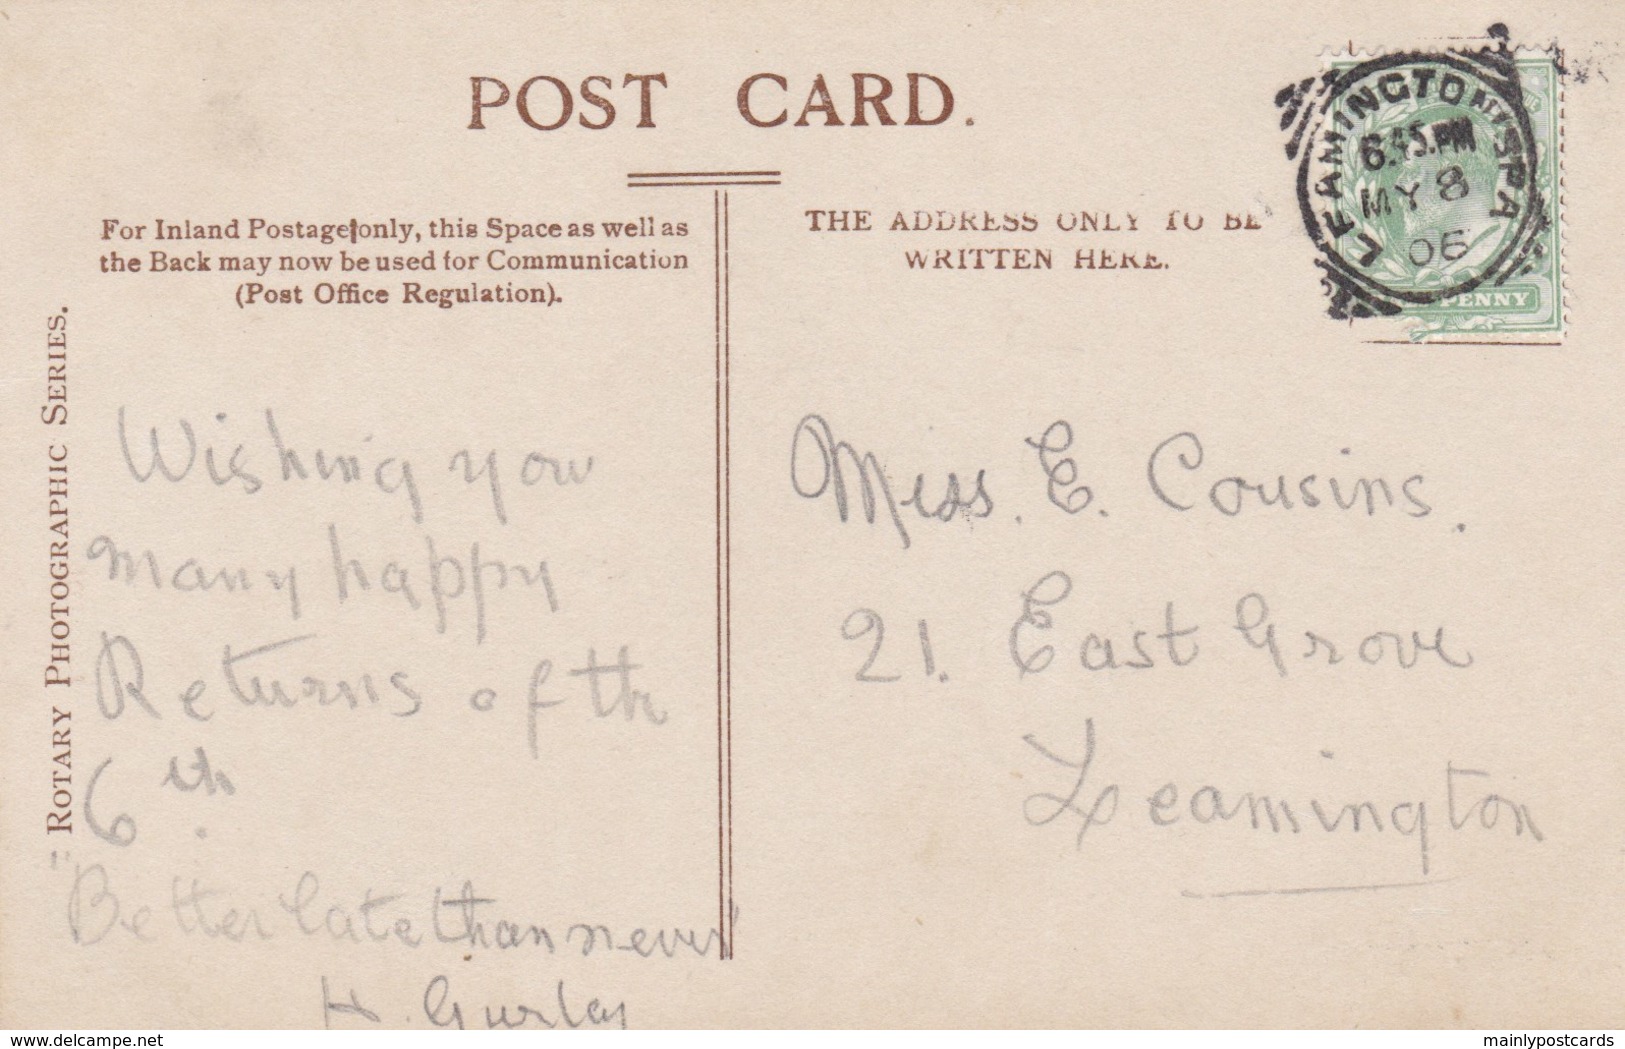 POST CARD.
For Inland Postage only, this Space as well as
the Back may now be used for Communication
(Post Office Regulation).
THE ADDRESS ONLY TO BE
WRITTEN HERE.
LEAMINGTON SPA
6.45.PM
MY 8
06
PENNY
ROTARY PHOTOGRAPHIC SERIES.
Wishing you
many happy
Returns of the
6th.
"Better late than never"
H.
Miss. E. Cousins.
21. East Grove
Leamington
www.delcampe.net
mainlypostcards